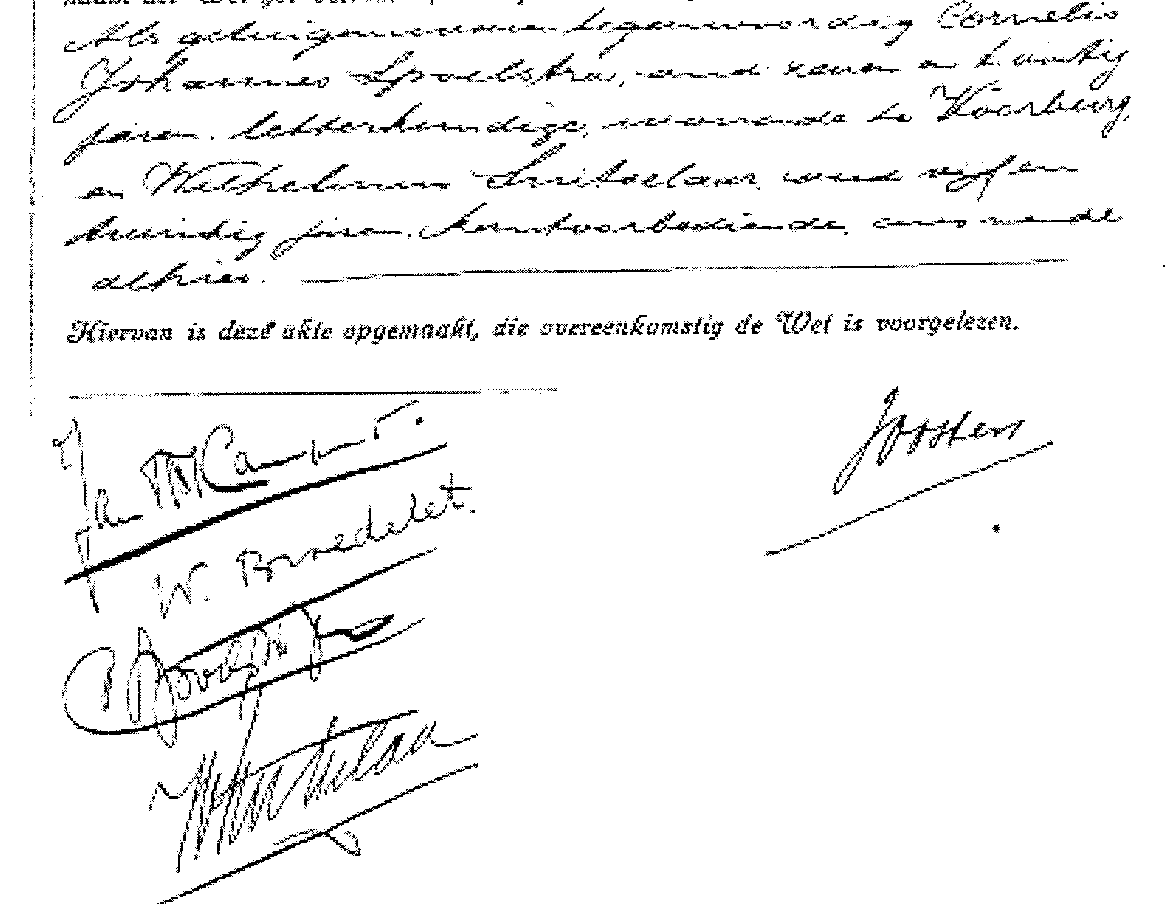 Als getuigen waren tegenwoordig Cornelis
Johannes Spoelstra, oud zeven en twintig
jaren. letterkundige, wonende te Voorburg,
en Wilhelmus Smitselaar, oud vijf en
twintig jaren. kantoorbediende, wonende
alhier.
Hiervan is deze akte opgemaakt, die overeenkomstig de Wet is voorgelezen.
Joosten
Jan R Th Campert.
W. Broedelet.